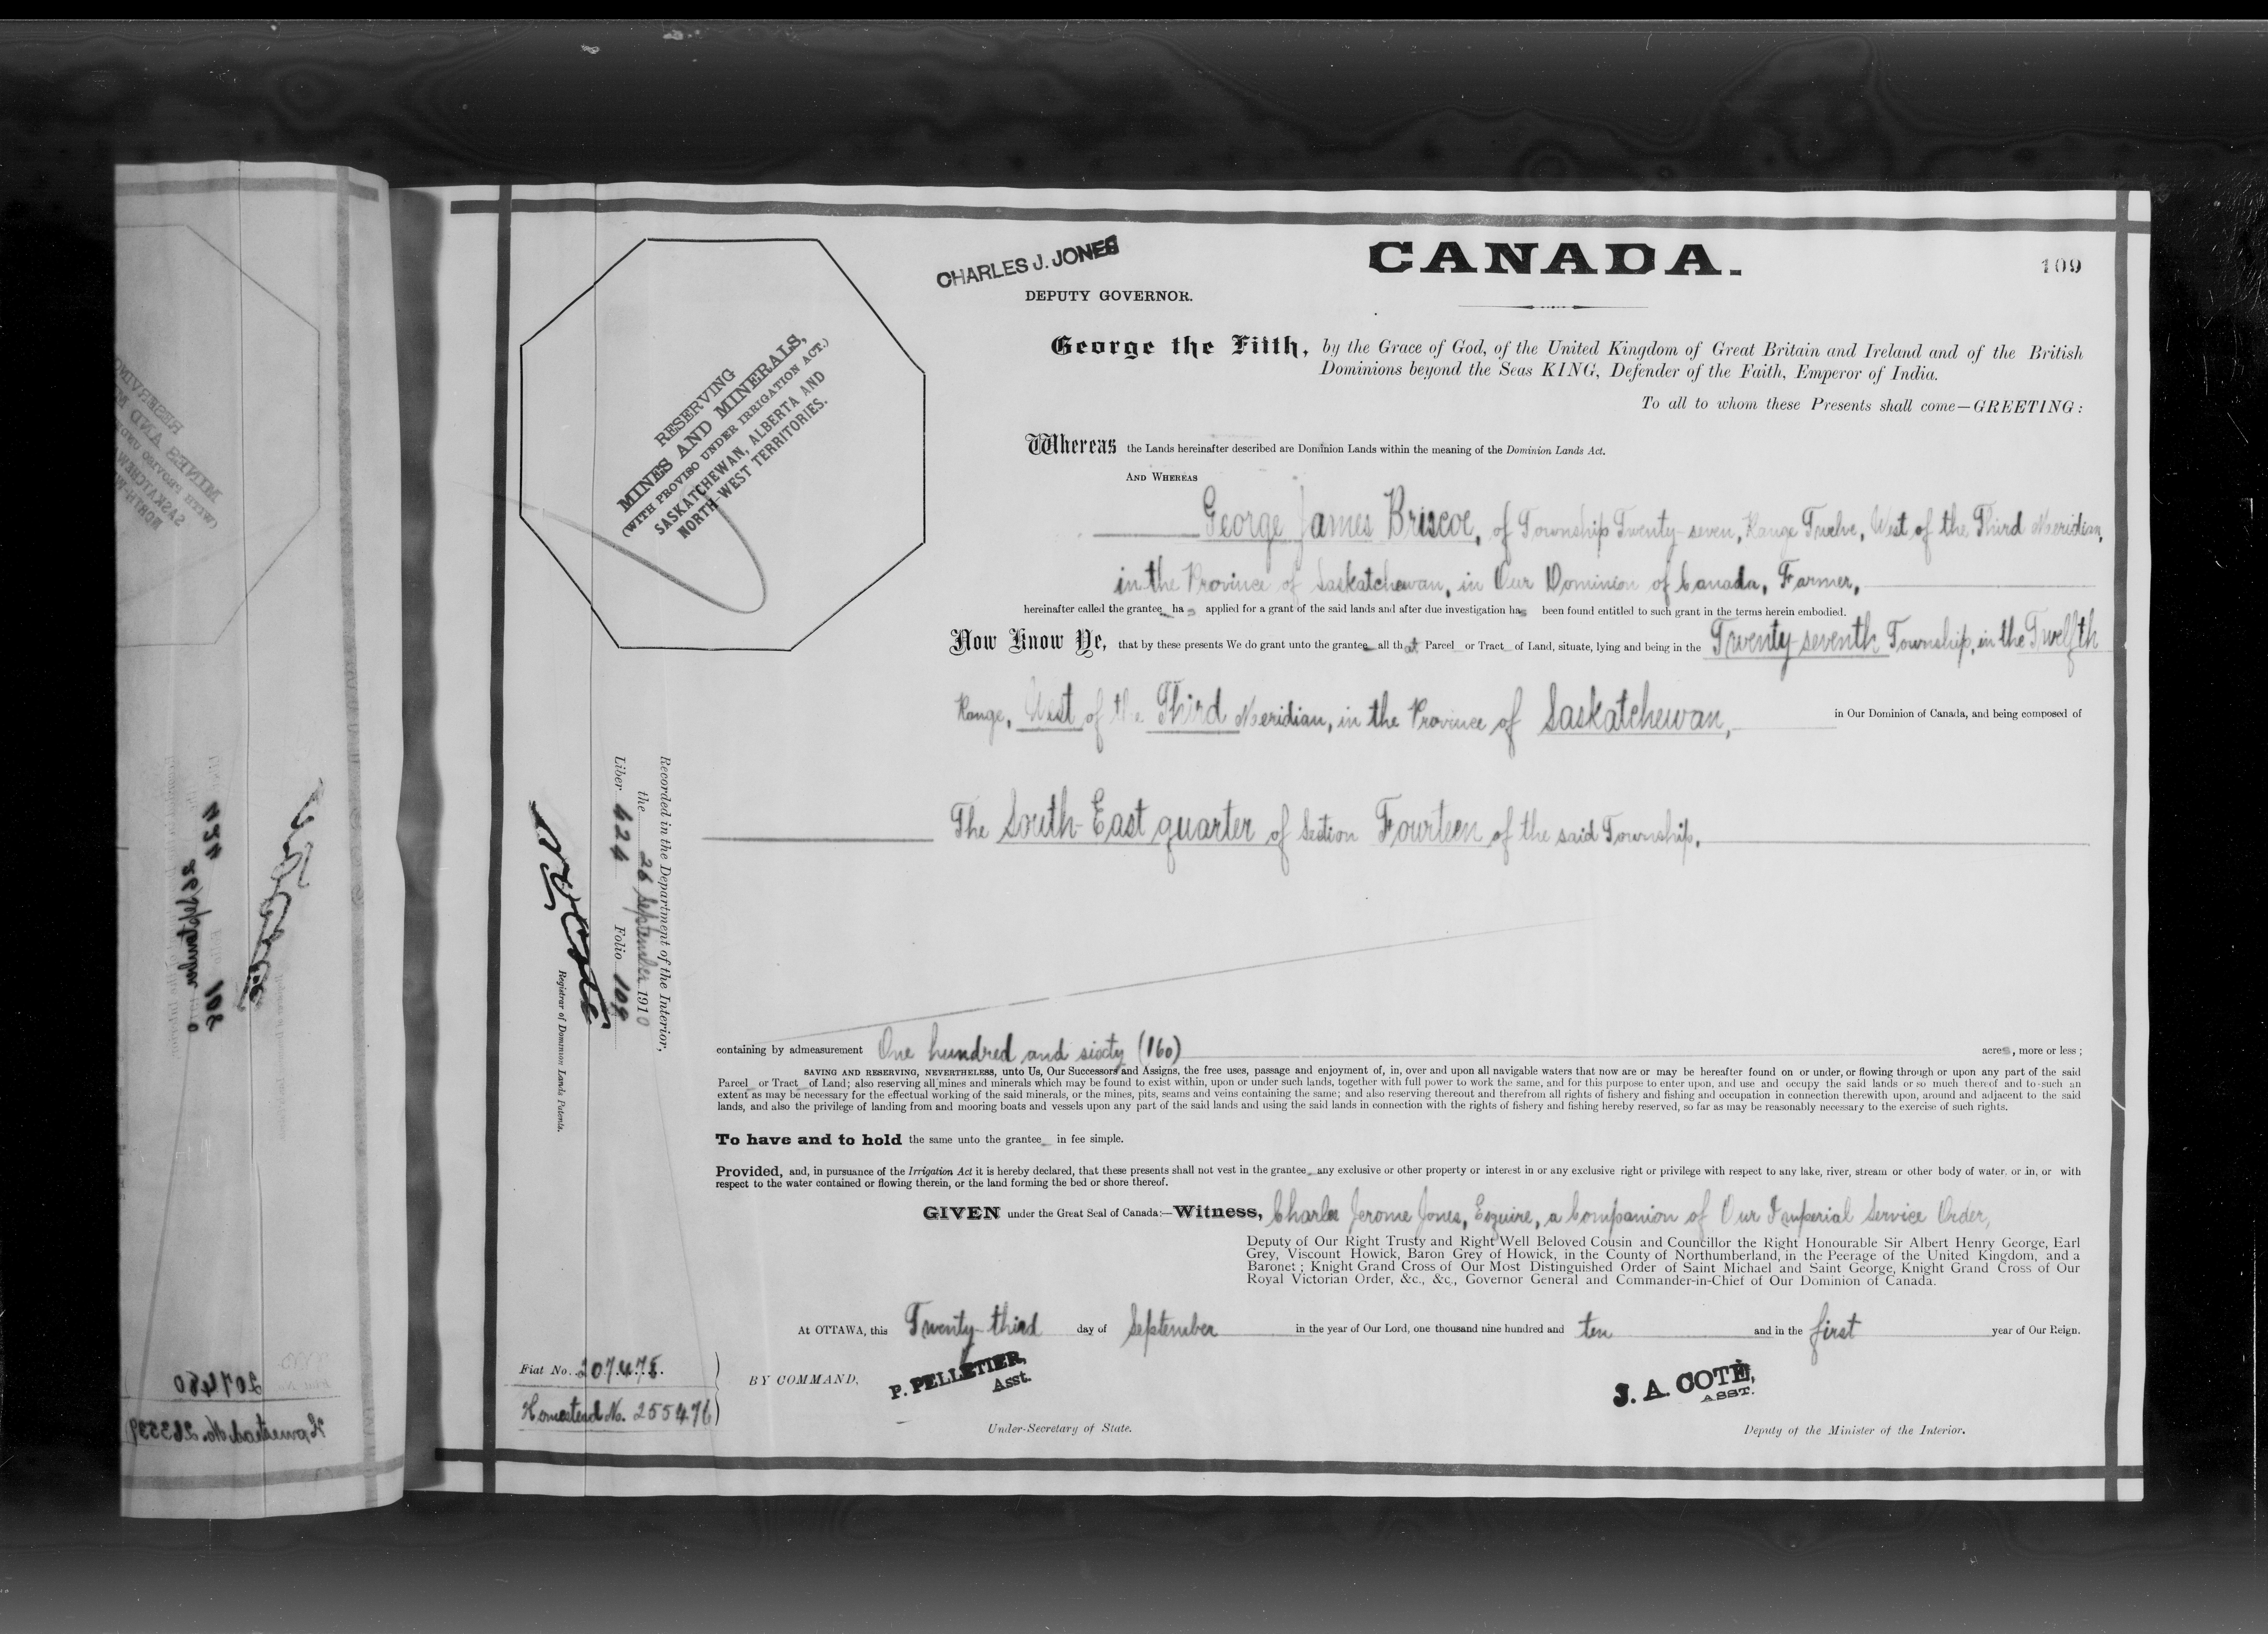 CHARLES J. JONES
DEPUTY GOVERNOR.
CANADA.
109
George the Fifth, by the Grace of God, of the United Kingdom of Great Britain and Ireland and of the British
Dominions beyond the Seas KING, Defender of the Faith, Emperor of India.
To all to whom these Presents shall come—GREETING:
RESERVING
MINES AND MINERALS,
(WITH PROVISO UNDER IRRIGATION ACT.)
SASKATCHEWAN, ALBERTA AND
NORTH-WEST TERRITORIES.
Whereas the Lands hereinafter described are Dominion Lands within the meaning of the Dominion Lands Act.
AND WHEREAS
George James Briscoe, of Township Twenty-seven, Range Twelve, West of the Third Meridian,
in the Province of Saskatchewan, in Our Dominion of Canada, Farmer,
hereinafter called the grantee has applied for a grant of the said lands and after due investigation has been found entitled to such grant in the terms herein embodied.
Now Know Ye, that by these presents We do grant unto the grantee all that Parcel or Tract of Land, situate, lying and being in the Twenty-seventh Township, in the Twelfth
Range, West of the Third Meridian, in the Province of Saskatchewan, in Our Dominion of Canada, and being composed of
The South-East quarter of Section Fourteen of the said Township.
Recorded in the Department of the Interior,
the 26 September 1910
Liber 424 Folio 109
N O Coté
Registrar of Dominion Lands Patents.
containing by admeasurement One hundred and sixty (160) acres, more or less;
SAVING AND RESERVING, NEVERTHELESS, unto Us, Our Successors and Assigns, the free uses, passage and enjoyment of, in, over and upon all navigable waters that now are or may be hereafter found on or under, or flowing through or upon any part of the said
Parcel or Tract of Land; also reserving all mines and minerals which may be found to exist within, upon or under such lands, together with full power to work the same, and for this purpose to enter upon, and use and occupy the said lands or so much thereof and to such an
extent as may be necessary for the effectual working of the said minerals, or the mines, pits, seams and veins containing the same; and also reserving thereout and therefrom all rights of fishery and fishing and occupation in connection therewith upon, around and adjacent to the said
lands, and also the privilege of landing from and mooring boats and vessels upon any part of the said lands and using the said lands in connection with the rights of fishery and fishing hereby reserved, so far as may be reasonably necessary to the exercise of such rights.
To have and to hold the same unto the grantee in fee simple.
Provided, and, in pursuance of the Irrigation Act it is hereby declared, that these presents shall not vest in the grantee any exclusive or other property or interest in or any exclusive right or privilege with respect to any lake, river, stream or other body of water, or in, or with
respect to the water contained or flowing therein, or the land forming the bed or shore thereof.
GIVEN under the Great Seal of Canada:—Witness, Charles Jerome Jones, Esquire, a Companion of Our Imperial Service Order,
Deputy of Our Right Trusty and Right Well Beloved Cousin and Councillor the Right Honourable Sir Albert Henry George, Earl
Grey, Viscount Howick, Baron Grey of Howick, in the County of Northumberland, in the Peerage of the United Kingdom, and a
Baronet; Knight Grand Cross of Our Most Distinguished Order of Saint Michael and Saint George, Knight Grand Cross of Our
Royal Victorian Order, &c., &c., Governor General and Commander-in-Chief of Our Dominion of Canada.
At OTTAWA, this Twenty-third day of September in the year of Our Lord, one thousand nine hundred and ten and in the first year of Our Reign.
Fiat No. 207478.
Homestead No. 255476
BY COMMAND,
P. PELLETIER,
Asst.
Under-Secretary of State.
J. A. COTÉ,
ASST.
Deputy of the Minister of the Interior.